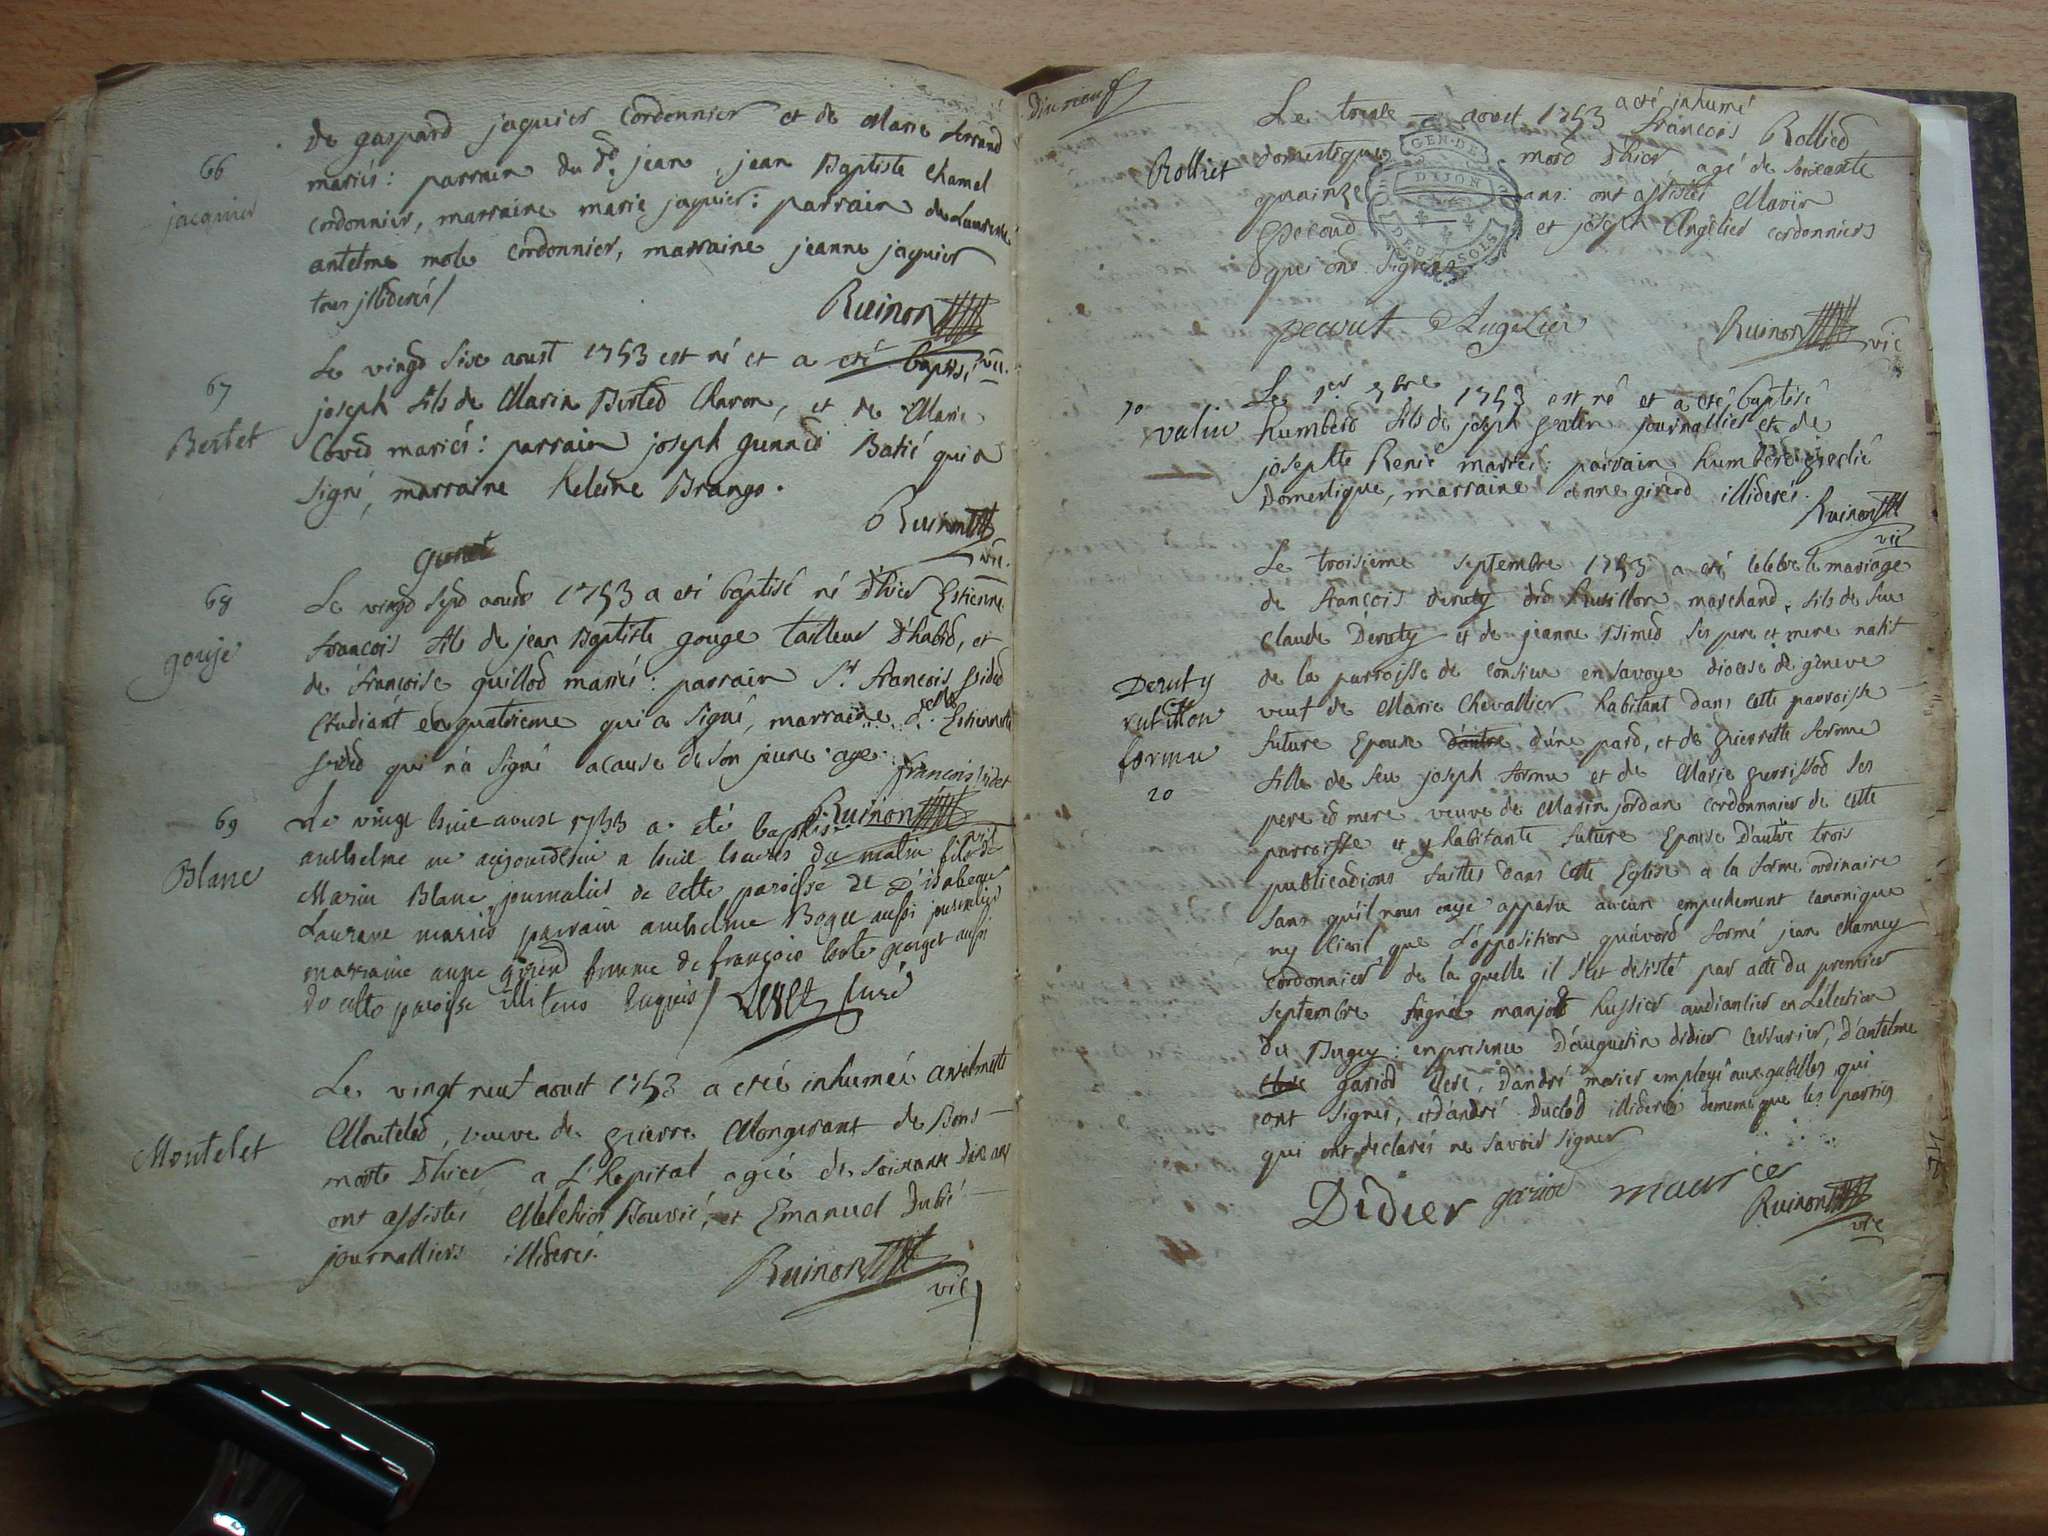 66
jacquier
de gaspard jaquier Cordonnier et de Marie
mariés: parrain du d. jean, jean Baptiste Chamel
cordonnier, marraine marie jaquier: parrain de
antelme mole Cordonnier, marraine jeanne jaquier
tous jlliderés/
Ruinon
vic.
67
Bertet
Le vingd Sixe aoust 1753 est né et a eté baptisé
joseph fils de Marin Berted Charon, et de Marie
Coved mariés: parrain joseph gunned Batié qui a
Signé, marraine heleine Brango.
Ruinon
vic.
gunet
68
gouje
Le vingd Sepd aoust 1753 a eté baptisé né d'hier Estienne
françois fils de jean Baptiste gouge tailleur d'habid, et
de françoise guillod mariés: parrain Sr françois
Etudiant en quatrieme qui a Signé, marraine Estiennette
qui n'a Signé acause de Son jeune age
françois
Ruinon
vic
69
Blanc
Le vingt huit aoust 1753 a eté baptisé
anthelme né aujourdhui a huit heures du matin fils de
Marin Blanc journalier de cette paroisse et D'isabeau
Laurane mariés parrain anthelme Bogee aussi journalier
marraine anne girerd femme de françois georget aussi
de cette paroisse Enquis/ Curé
Montelet
Le vingt neuf aoust 1753 a eteé inhumeé anthelmette
Monteled, veuve de pierre Mongerant de Bons
morte d'hier a L'hopital ageé de soixante dixe ans
ont assistés Melchior Bouvié, et Emanuel Dubié
journalliers illiderés.
Ruinon
vic
Dixneuf
Rolliet
Le trente aout 1753 a eté inhumé
françois Rollied
domestique mord d'hier agé de soixante
quainze ans: ont assistés Marin
pecoud et joseph Angelier cordonniers
qui ont Signés
pecout Angelier
Ruinon
vic
GEN. DE
DIJON
DEUX SOLS
70
valin
Le 1er 7bre 1753 est né et a eté baptisé
humberd fils de joseph valin journallier et de
josephte Renié mariés: parrain humberd
Domestique, marraine anne girerd illiderés.
Ruinon
vic
Deruty
rutillon
formu
20
Le troisieme Septembre 1753 a eté celebré le mariage
de françois deruty did Rutillon marchand, fils de feu
Claude Deruty et de jeanne Bimed Ses pere et mere natif
de la parroisse de Consieu en Savoye diocese de geneve
veuf de Marie Chevallier habitant dans cette parroisse
future Epouse d'autre d'une pard, et de pierrette formu
fille de feu joseph formu et de Marie perrissod Ses
pere ed mere veuve de Marin jordan cordonnier de cette
parroisse et y habitante future Epouse D'autre trois
publicadions faites dans cette Eglise a la forme ordinaire
Sans qu'il nous onye apparu aucun empechement canonique
ny Civil que L'opposition qu'avoid formé jean Chamey
cordonnier de la quelle il s'est desisté par acte du premier
Septembre Signée manjod hussier audiantier en L'election
du Bugey: en presence D'auguesin didier D'antelme
Clere gariod Clerc, d'andré morier employé aux gabelles qui
ont Signés, et d'andré Duclod illideré dememe que les parties
qui ont declarés ne Savoir Signer
Didier gariod maurier
Ruinon
vic